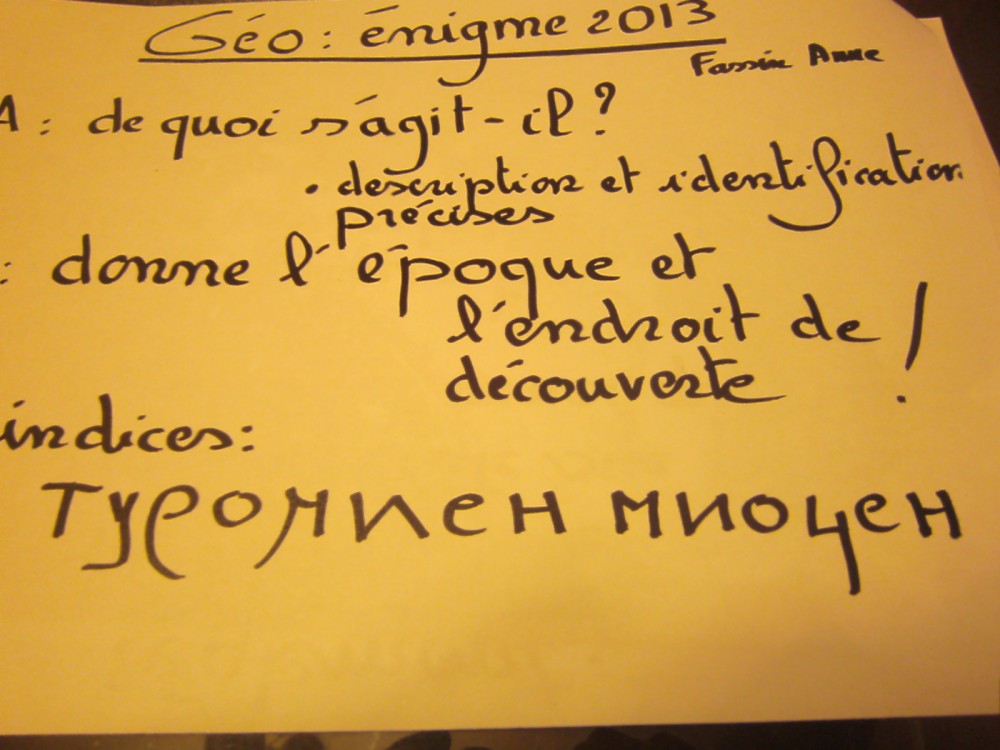 Géo : énigme 2013
Fassin Anne
A : de quoi s'agit-il ?
• description et identification
précises
: donne l'époque et
l'endroit de
découverte !
indices :
туромиен миоцен